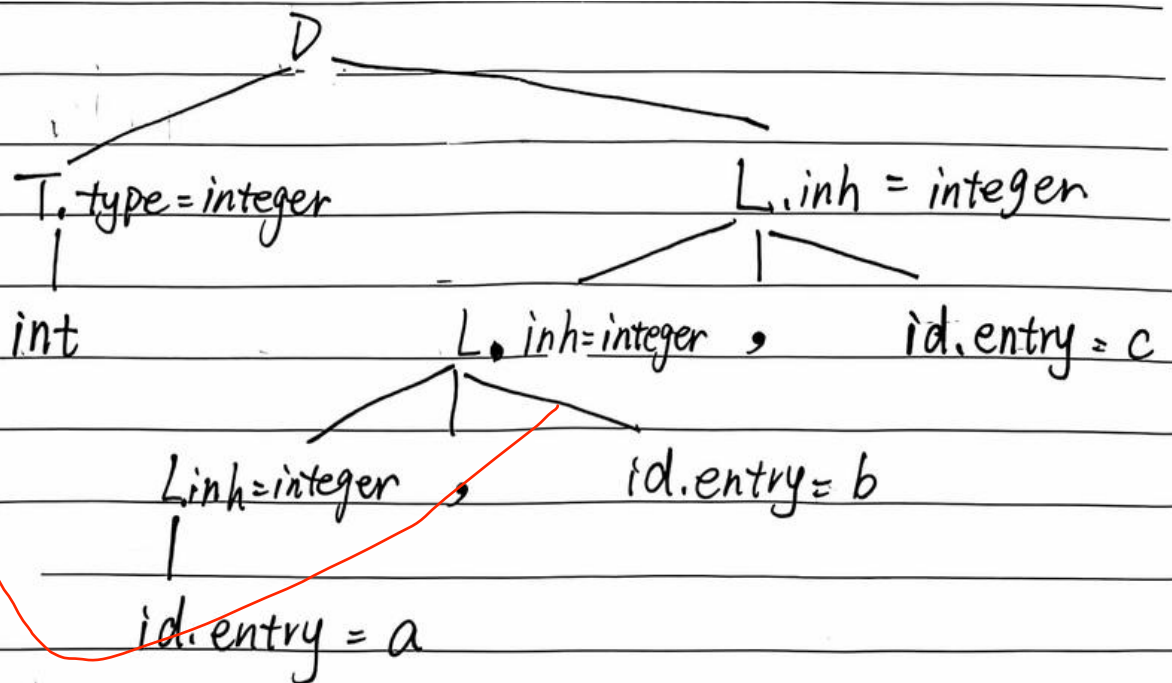 D
T.type=integer L.inh = integer
int L. inh=integer , id.entry = c
L.inh=integer , id.entry = b
id.entry = a